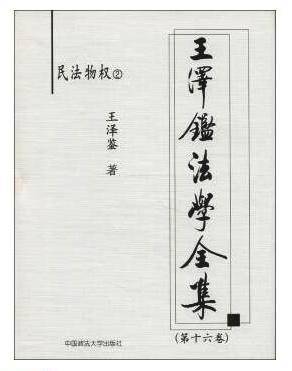 王澤鑑法學全集
(第十六卷)
民法物权②
王泽鉴 著
中国政法大学出版社